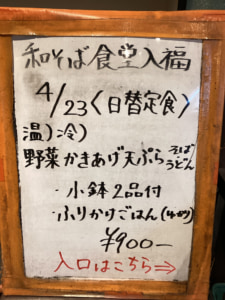 和そば食堂入福
4/23〈日替定食〉
温)冷)
野菜かきあげ天ぷらそばうどん
・小鉢2品付
・ふりかけごはん
¥900-
入口はこちら⇒